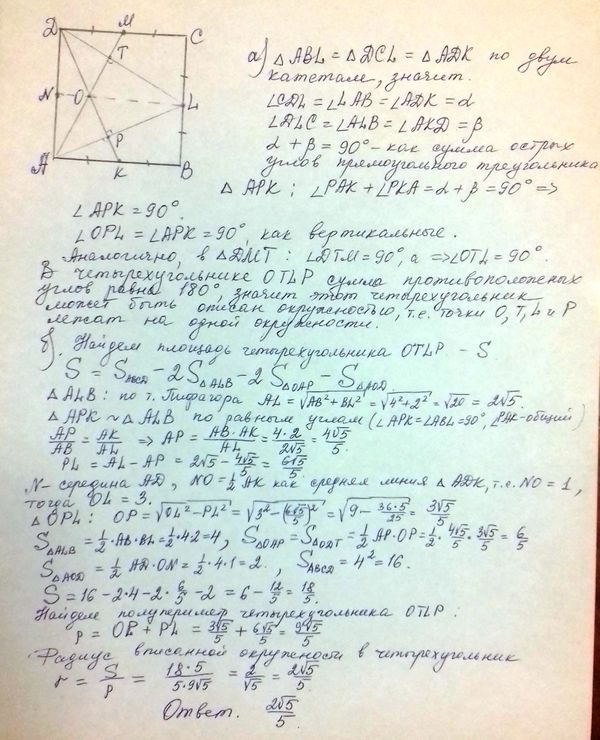 D M C
T
N O L
P
A K B
а) △ABL = △DCL = △ADK по двум
катетам, значит.
∠CDL = ∠LAB = ∠ADK = α
∠DLC = ∠ALB = ∠AKD = β
α + β = 90° - как сумма острых
углов прямоугольного треугольника
△APK: ∠PAK + ∠PKA = α + β = 90° =>
∠APK = 90°.
∠OPL = ∠APK = 90°, как вертикальные.
Аналогично, в △DMT: ∠DTM = 90°, а => ∠OTL = 90°.
В четырехугольнике OTLP сумма противоположеных
углов равна 180°, значит этот четырехугольник
может быть описан окружностью, т.е. точки O, T, L и P
лежат на одной окружности.
б). Найдем площадь четырехугольника OTLP - S
S = S_ABCD - 2S_△ALB - 2S_△OAP - S_△AOD.
△ALB: по т. Пифагора AL = √(AB² + BL²) = √(4² + 2²) = √20 = 2√5.
△APK ~ △ALB по равным углам (∠APK = ∠ABL = 90°, ∠PAK - общий)
AP/AB = AK/AL => AP = AB·AK/AL = 4·2/2√5 = 4√5/5
PL = AL - AP = 2√5 - 4√5/5 = 6√5/5
N - середина AD, NO = 1/2 AK как средняя линия △ADK, т.е. NO = 1,
тогда OL = 3.
△OPL: OP = √(OL² - PL²) = √(3² - (6√5/5)²) = √(9 - 36·5/25) = 3√5/5
S_△ALB = 1/2·AB·BL = 1/2·4·2 = 4, S_△OAP = S_△ODT = 1/2 AP·OP = 1/2·4√5/5·3√5/5 = 6/5
S_△AOD = 1/2 AD·ON = 1/2·4·1 = 2., S_ABCD = 4² = 16.
S = 16 - 2·4 - 2·6/5 - 2 = 6 - 12/5 = 18/5.
Найдем полупериметр четырехугольника OTLP:
p = OP + PL = 3√5/5 + 6√5/5 = 9√5/5
Радиус вписанной окружности в четырехугольник
r = S/p = 18·5/5·9√5 = 2/√5 = 2√5/5
Ответ. 2√5/5.